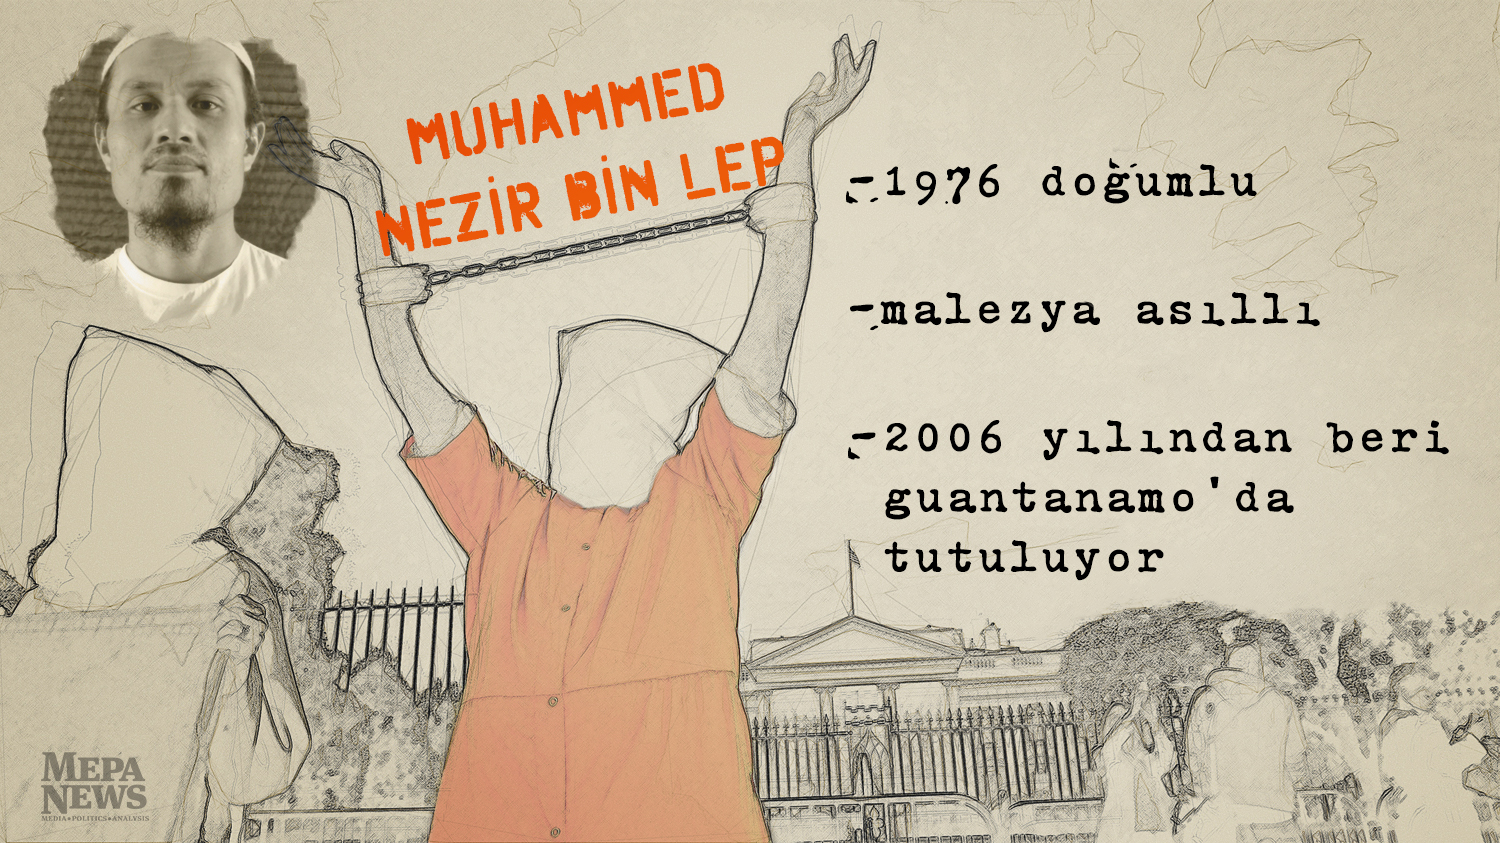 MUHAMMED
NEZİR BİN LEP
-1976 doğumlu
-malezya asıllı
-2006 yılından beri
guantanamo'da
tutuluyor
MEPA
NEWS
MEDIA•POLITICS•ANALYSIS